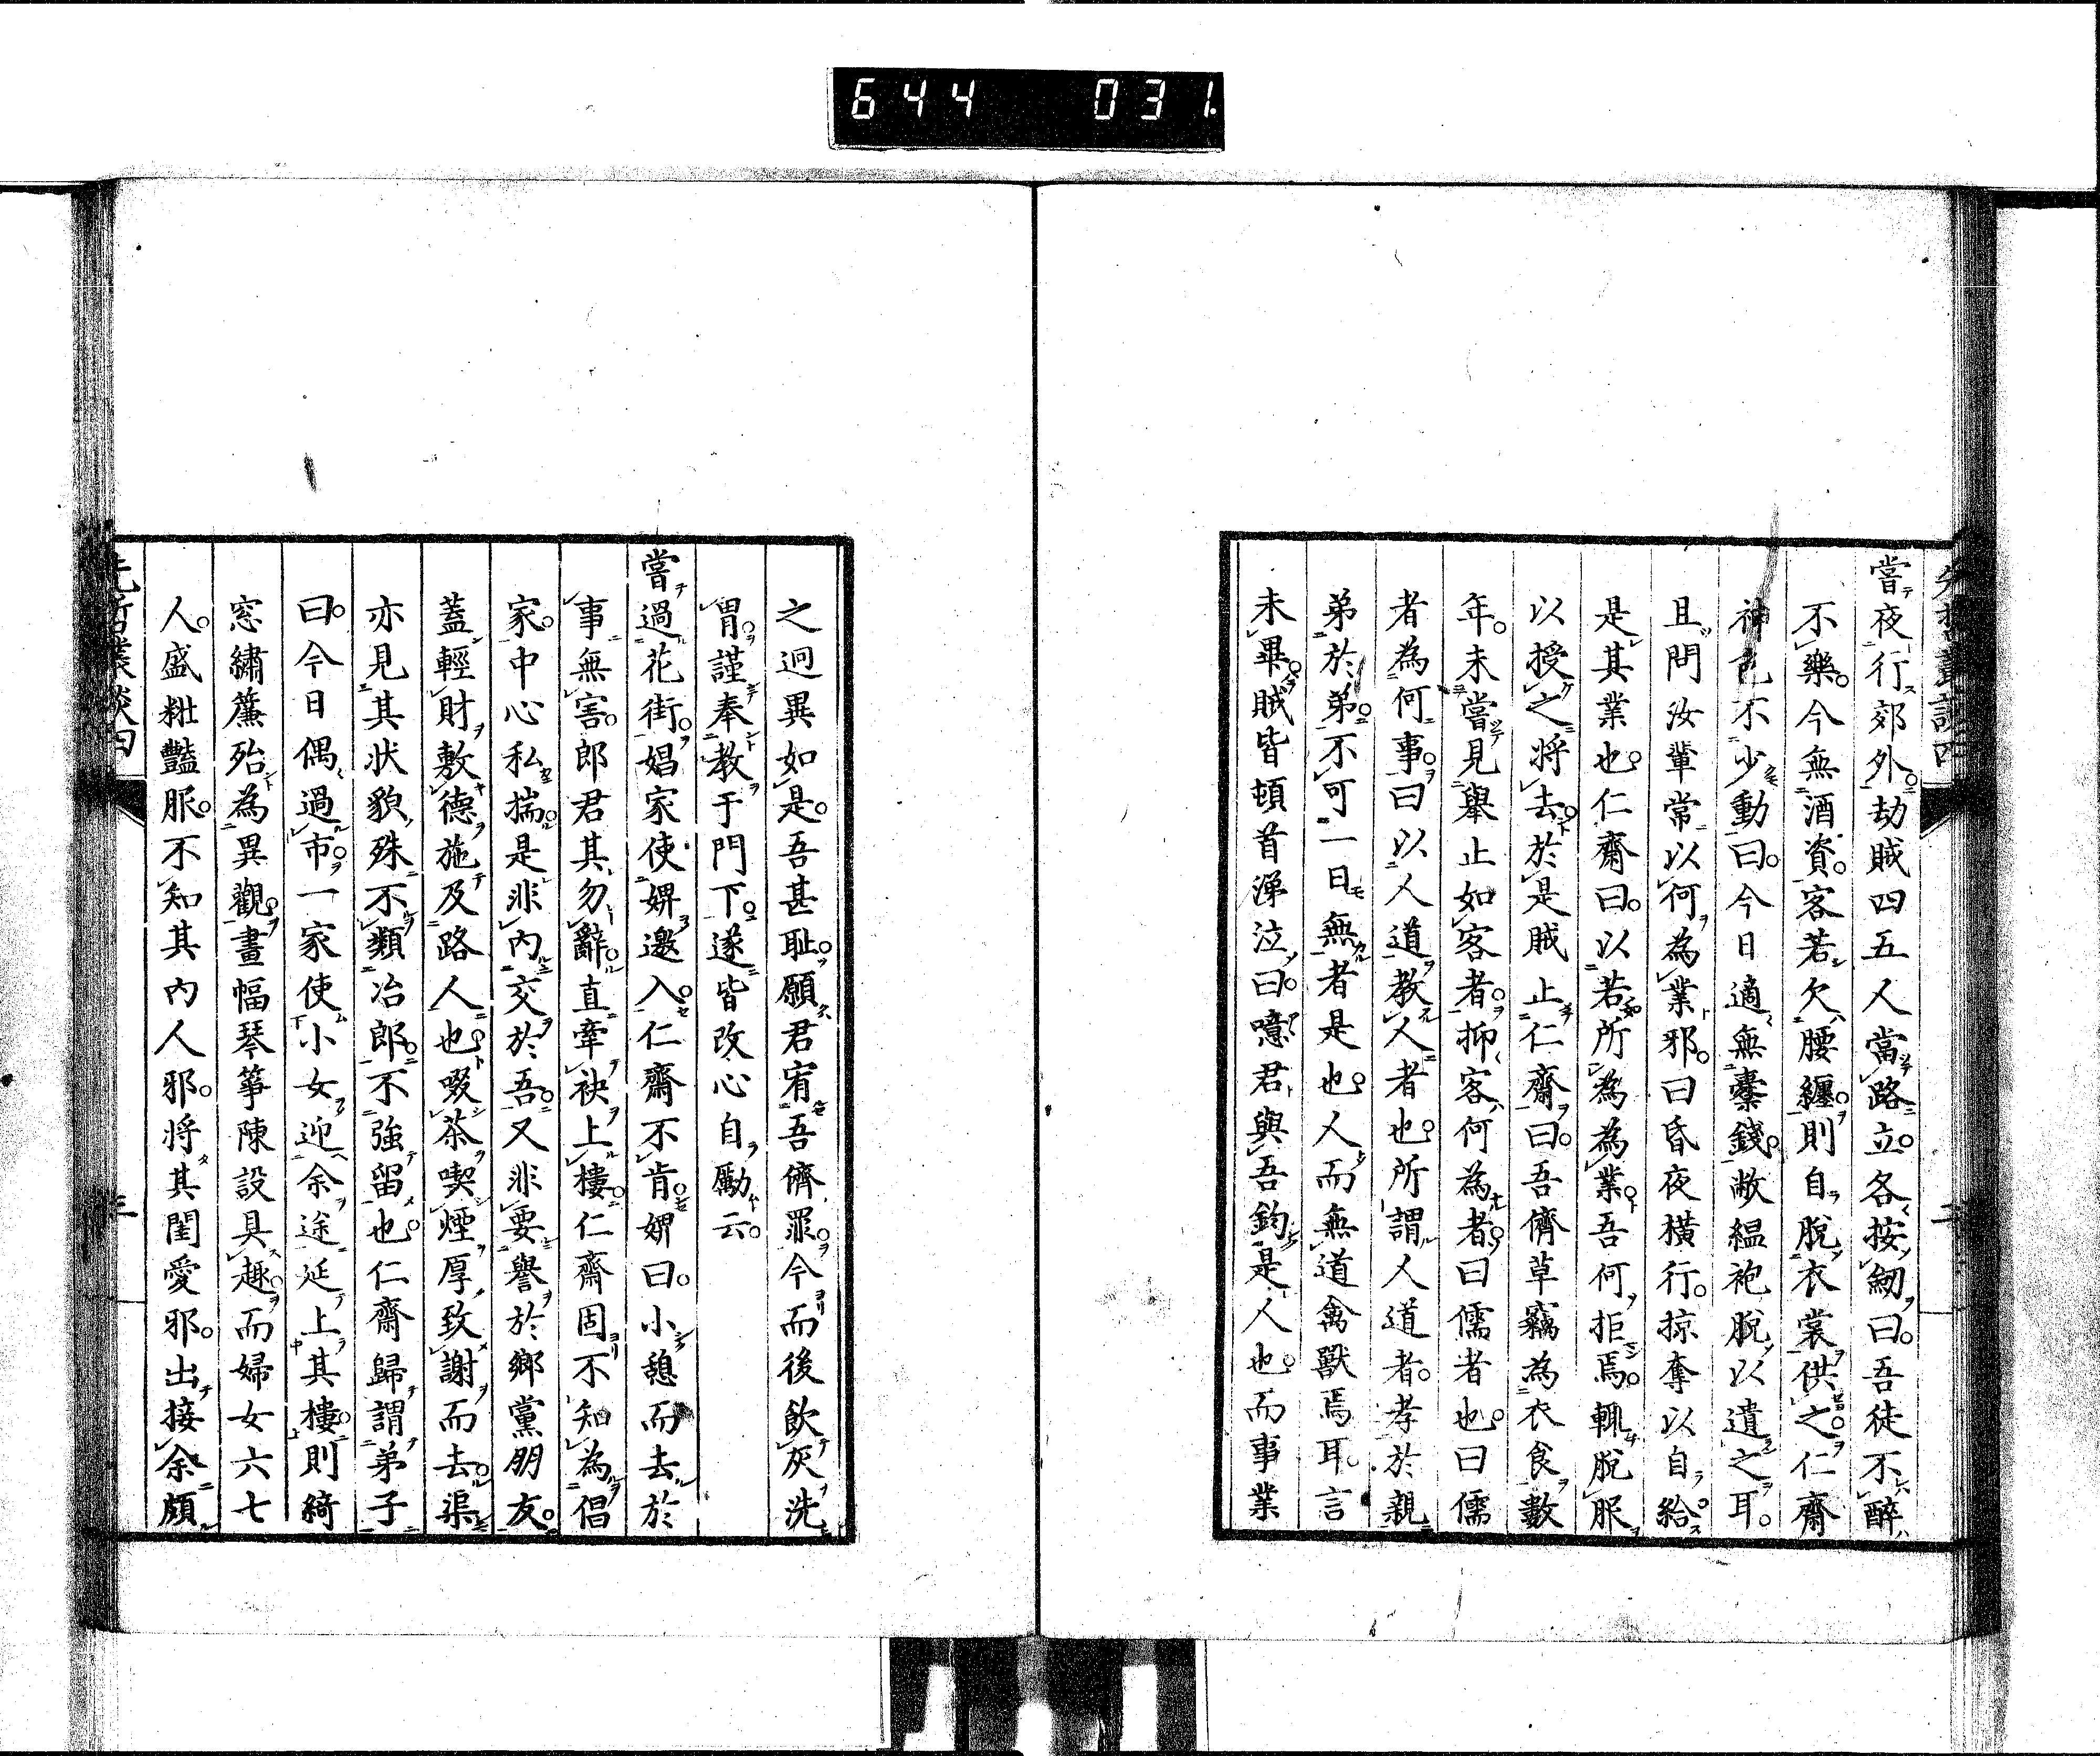 644 031
先哲叢談四
二
嘗夜行郊外。劫賊四五人當路立。各按劒曰。吾徒不醉
不樂。今無酒資。客若欠腰纏。則自脫衣裳供之。仁齋
神色不少動曰。今日適無橐錢。敝縕袍脫以遺之耳。
且問汝輩常以何為業邪。曰昏夜橫行。掠奪以自給。
是其業也。仁齋曰。以若所為為業。吾何拒焉。輒脫服
以授之將去。於是賊止仁齋曰。吾儕草竊為衣食數
年。未嘗見舉止如客者。抑客何為者。曰儒者也。曰儒
者為何事。曰以人道教人者也。所謂人道者。孝於親
弟於弟。不可一日無者是也。人而無道禽獸焉耳。言
未畢。賊皆頓首涕泣曰。噫君與吾鈞是人也。而事業
之迥異如是。吾甚耻。願君宥吾儕罪。今而後飲灰洗
胃。謹奉教于門下。遂皆改心自勵云。
嘗過花街。娼家使婢邀入。仁齋不肯。婢曰。小憩而去於
事無害。郎君其勿辭。直牽袂上樓。仁齋固不知為倡
家。中心私揣。是非內交於吾。又非要譽於鄉黨朋友。
蓋輕財敷德。施及路人也。啜茶喫煙厚致謝而去。渠
亦見其狀貌殊不類冶郎。不強留也。仁齋歸謂弟子
曰。今日偶過市。一家使小女迎余途延上其樓。則綺
窓繡簾殆為異觀。畫幅琴箏陳設具趣。而婦女六七
人。盛粧豔服。不知其內人邪。將其閨愛邪。出接余頗
先哲叢談四
三